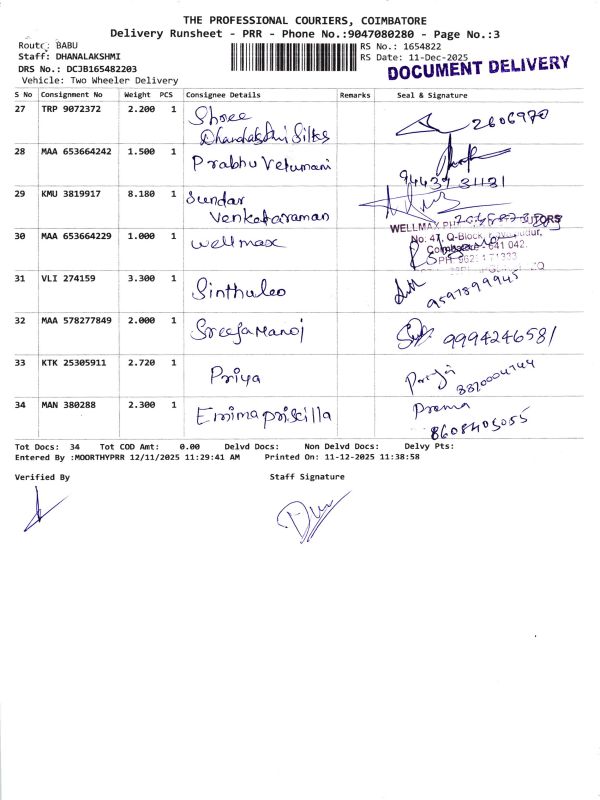 THE PROFESSIONAL COURIERS, COIMBATORE
Delivery Runsheet - PRR - Phone No.:9047080280 - Page No.:3
Route: BABU
RS No.: 1654822
Staff: DHANALAKSHMI
RS Date: 11-Dec-2025
DRS No.: DCJB165482203
DOCUMENT DELIVERY
Vehicle: Two Wheeler Delivery
S No Consignment No Weight PCS Consignee Details Remarks Seal & Signature
27 TRP 9072372 2.200 1 Shree
Dhanalakshmi Silks
2606970
28 MAA 653664242 1.500 1 Prabhu Velumani
94439 31131
29 KMU 3819917 8.180 1 Sundar
Venkataraman
30 MAA 653664229 1.000 1 Wellmax
WELLMAX
No: 47, Q-Block,
641 042.
31 VLI 274159 3.300 1 Sinthuleo
9597899945
32 MAA 578277849 2.000 1 Sreeja Manoj
9994246581
33 KTK 25305911 2.720 1 Priya
8870004744
34 MAN 380288 2.300 1 Emima priscilla
Prema
8608405055
Tot Docs: 34 Tot COD Amt: 0.00 Delvd Docs: Non Delvd Docs: Delvy Pts:
Entered By :MOORTHYPRR 12/11/2025 11:29:41 AM Printed On: 11-12-2025 11:38:58
Verified By Staff Signature